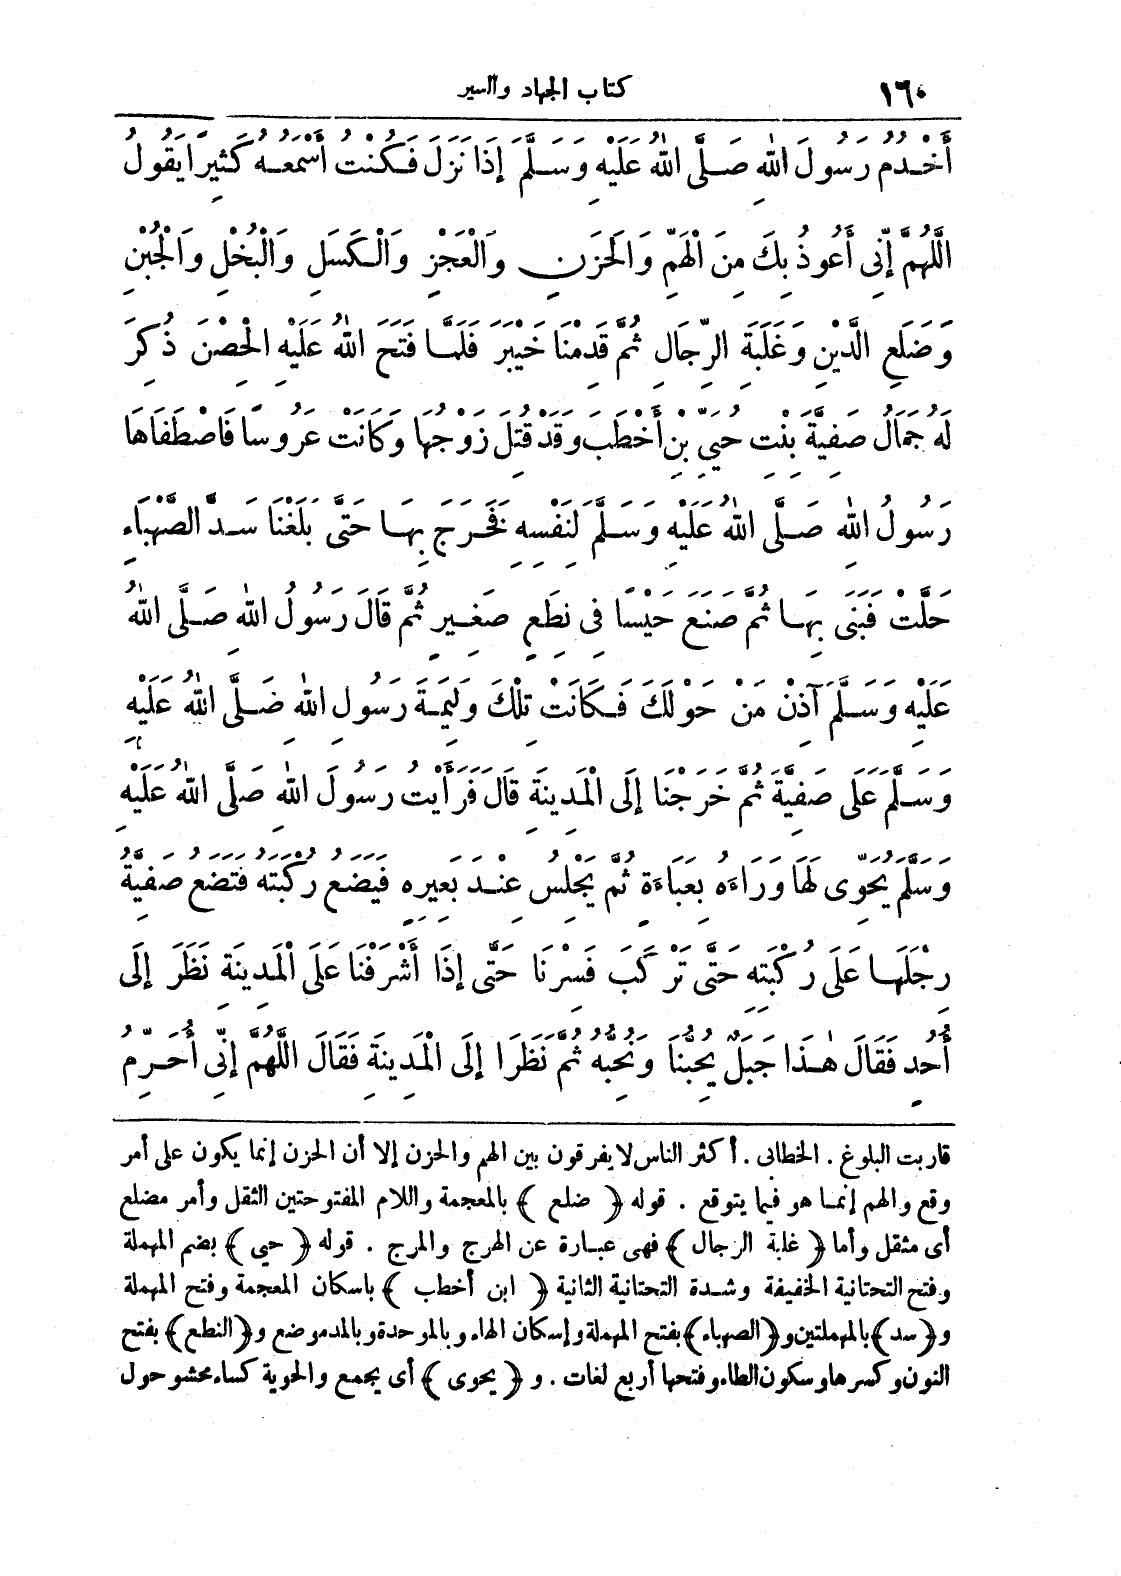 ١٦٠ كتاب الجهاد والسير
أَخْدُمُ رَسُولَ اللهِ صَلَّى اللهُ عَلَيْهِ وَسَلَّمَ إِذَا نَزَلَ فَكُنْتُ أَسْمَعُهُ كَثِيرًا يَقُولُ
اللَّهُمَّ إِنِّي أَعُوذُ بِكَ مِنَ الْهَمِّ وَالْحَزَنِ وَالْعَجْزِ وَالْكَسَلِ وَالْبُخْلِ وَالْجُبْنِ
وَضَلَعِ الدَّيْنِ وَغَلَبَةِ الرِّجَالِ ثُمَّ قَدِمْنَا خَيْبَرَ فَلَمَّا فَتَحَ اللهُ عَلَيْهِ الْحِصْنَ ذُكِرَ
لَهُ جَمَالُ صَفِيَّةَ بِنْتِ حُيَيِّ بْنِ أَخْطَبَ وَقَدْ قُتِلَ زَوْجُهَا وَكَانَتْ عَرُوسًا فَاصْطَفَاهَا
رَسُولُ اللهِ صَلَّى اللهُ عَلَيْهِ وَسَلَّمَ لِنَفْسِهِ فَخَرَجَ بِهَا حَتَّى بَلَغْنَا سَدَّ الصَّهْبَاءِ
حَلَّتْ فَبَنَى بِهَا ثُمَّ صَنَعَ حَيْسًا فِي نِطَعٍ صَغِيرٍ ثُمَّ قَالَ رَسُولُ اللهِ صَلَّى اللهُ
عَلَيْهِ وَسَلَّمَ آذِنْ مَنْ حَوْلَكَ فَكَانَتْ تِلْكَ وَلِيمَةَ رَسُولِ اللهِ صَلَّى اللهُ عَلَيْهِ
وَسَلَّمَ عَلَى صَفِيَّةَ ثُمَّ خَرَجْنَا إِلَى الْمَدِينَةِ قَالَ فَرَأَيْتُ رَسُولَ اللهِ صَلَّى اللهُ عَلَيْهِ
وَسَلَّمَ يُحَوِّى لَهَا وَرَاءَهُ بِعَبَاءَةٍ ثُمَّ يَجْلِسُ عِنْدَ بَعِيرِهِ فَيَضَعُ رُكْبَتَهُ فَتَضَعُ صَفِيَّةُ
رِجْلَهَا عَلَى رُكْبَتِهِ حَتَّى تَرْكَبَ فَسِرْنَا حَتَّى إِذَا أَشْرَفْنَا عَلَى الْمَدِينَةِ نَظَرَ إِلَى
أُحُدٍ فَقَالَ هٰذَا جَبَلٌ يُحِبُّنَا وَنُحِبُّهُ ثُمَّ نَظَرَ إِلَى الْمَدِينَةِ فَقَالَ اللَّهُمَّ إِنِّي أُحَرِّمُ
قاربت البلوغ . الخطابى . أكثر الناس لا يفرقون بين الهم والحزن إلا أن الحزن إنما يكون على أمر
وقع والهم إنما هو فيما يتوقع . قوله ﴿ ضلع ﴾ بالمعجمة واللام المفتوحتين الثقل وأمر مضلع
أى مثقل وأما ﴿ غلبة الرجال ﴾ فهى عبارة عن الهرج والمرج . قوله ﴿ حيي ﴾ بضم المهملة
وفتح التحتانية الخفيفة وشدة التحتانية الثانية ﴿ ابن أخطب ﴾ باسكان المعجمة وفتح المهملة
و﴿سد﴾ بالمهملتين و﴿الصهباء﴾ بفتح المهملة وإسكان الهاء وبالموحدة وبالمد موضع و﴿النطع﴾ بفتح
النون وكسرها وسكون الطاء وفتحها أربع لغات . و ﴿ يحوى ﴾ أى يجمع والحوية كساء محشو حول